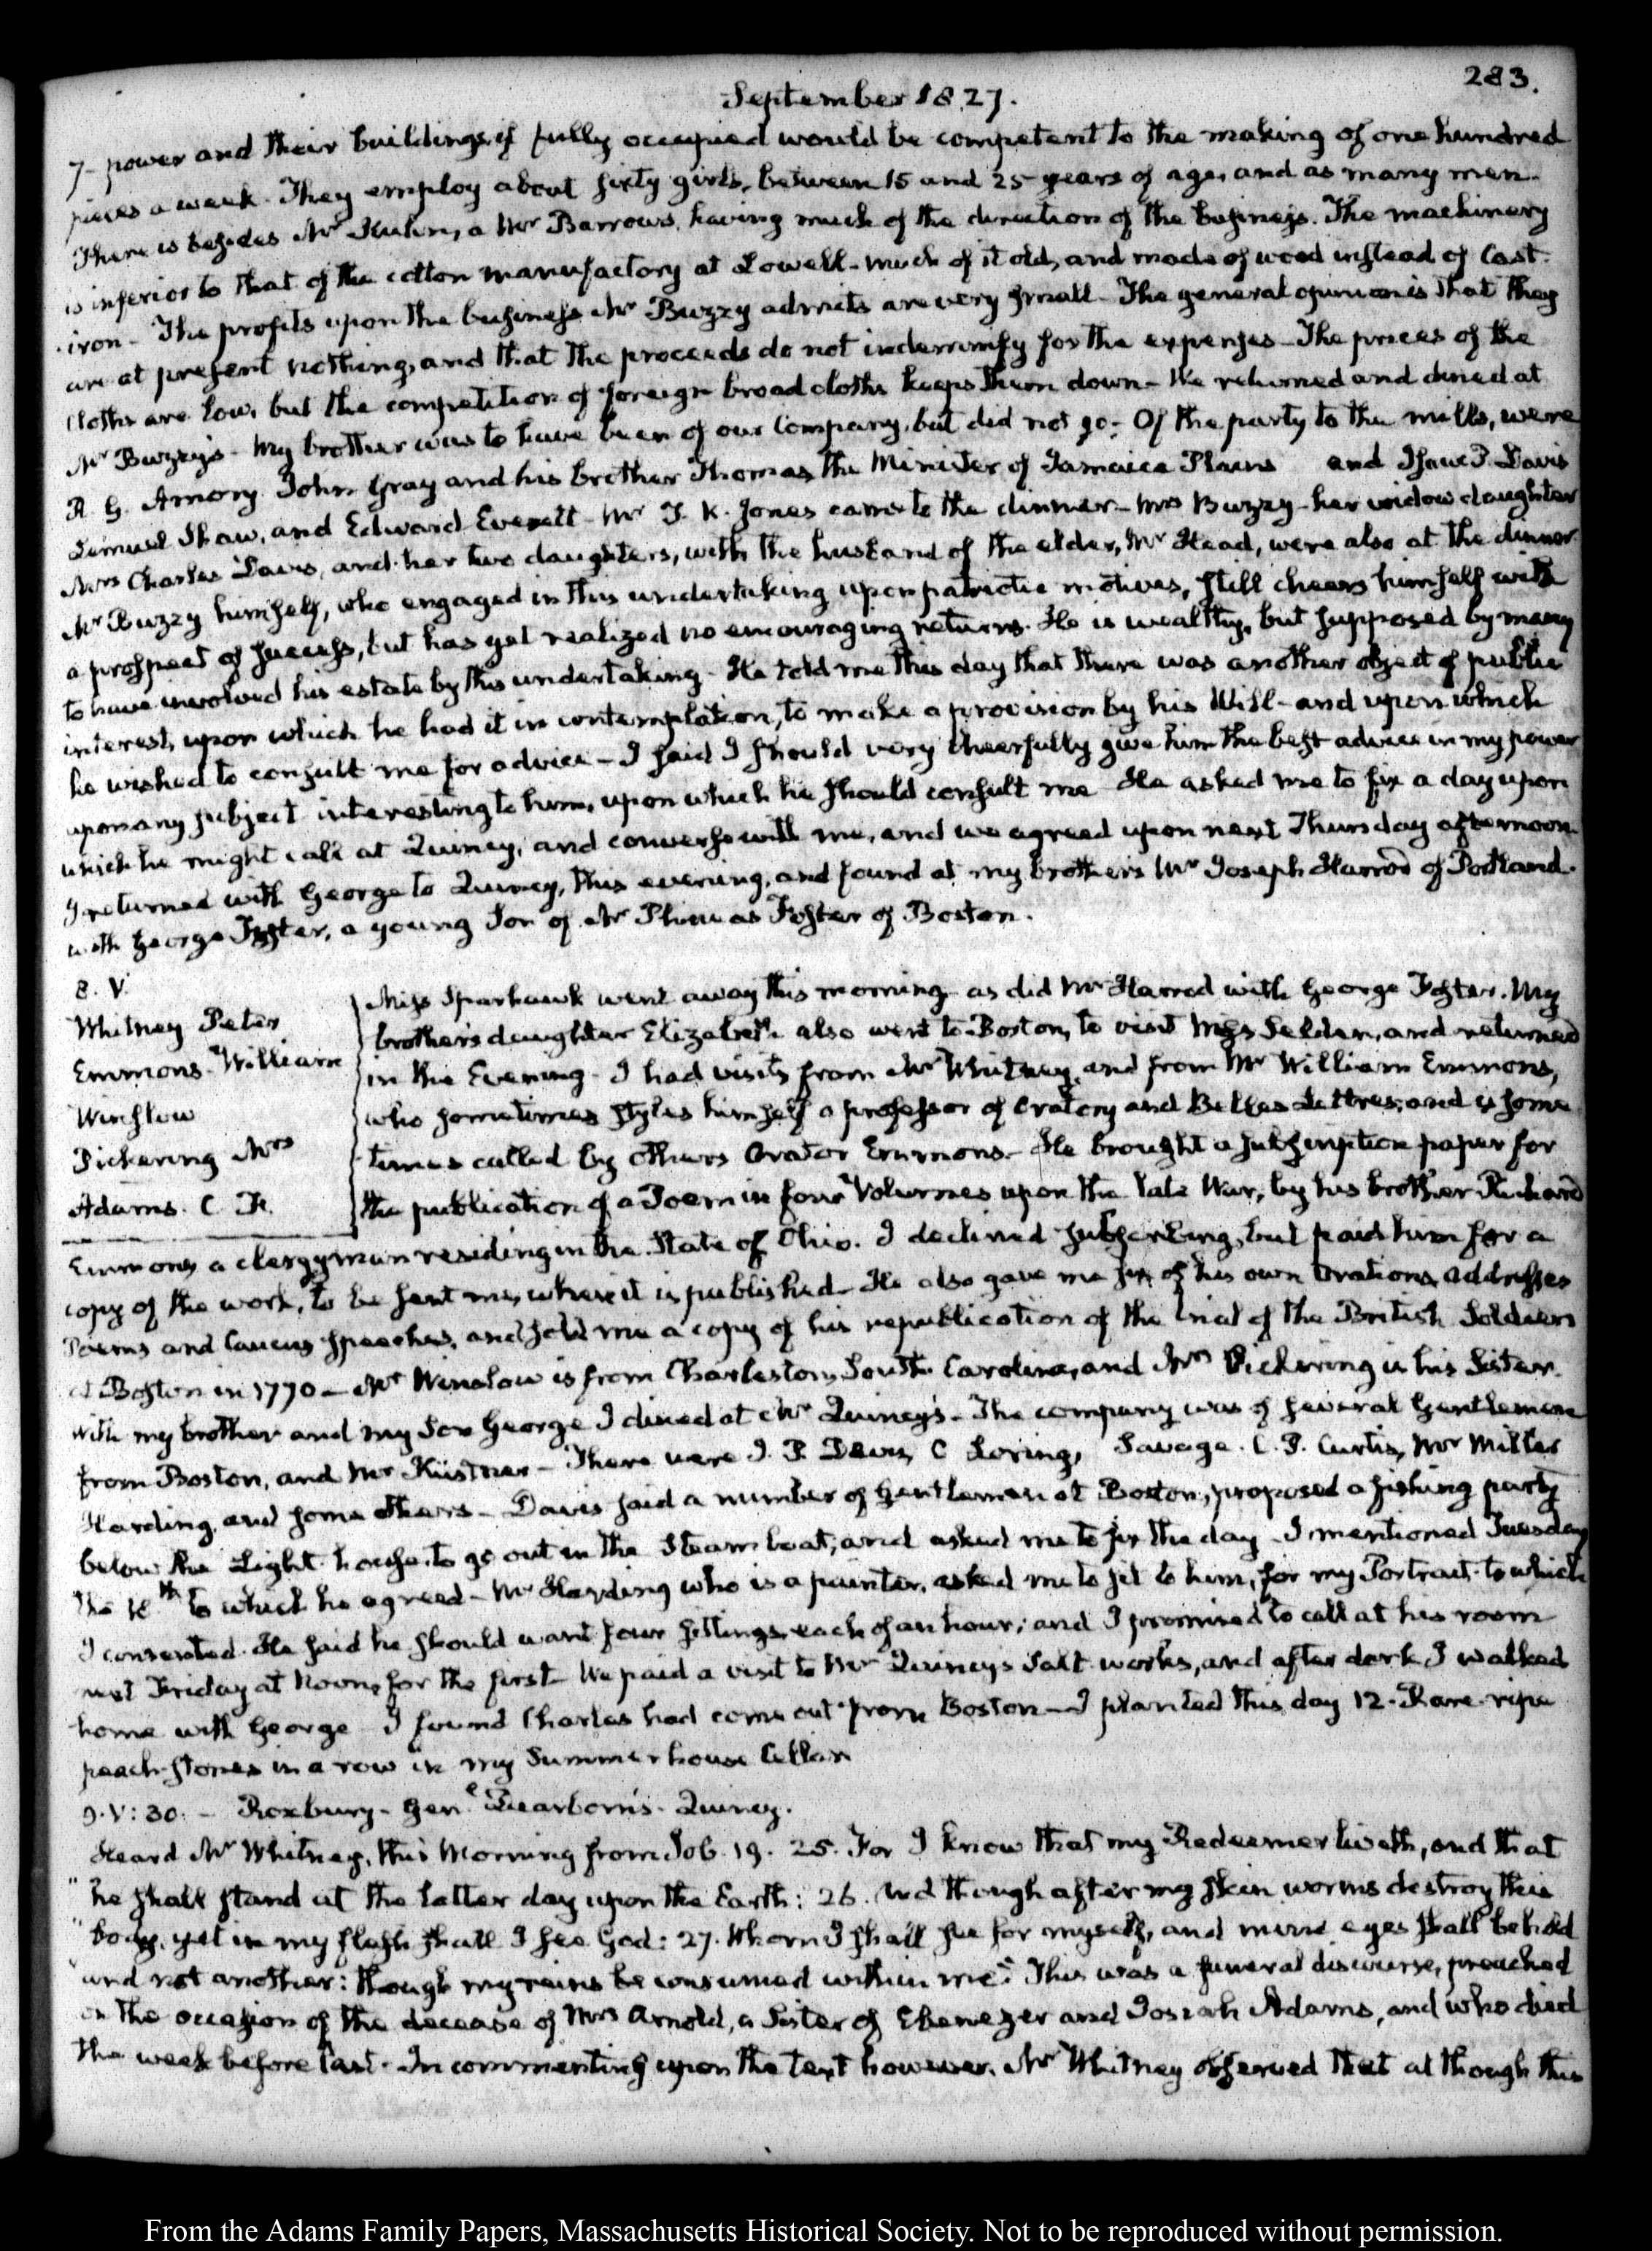 283.
September 1827.
7- power and their buildings, if fully occupied would be competent to the making of one hundred
pieces a week. They employ about sixty girls, between 15 and 25 years of age, and as many men.
There is besides Mr Kuhn, a Mr Barrows, having much of the direction of the business. The machinery
is inferior to that of the cotton manufactory at Lowell- much of it old, and made of wood instead of Cast-
iron- The profits upon the business Mr Buzzy admits are very small- The general opinion is that they
are at present nothing, and that the proceeds do not indemnify for the expenses- The prices of the
Cloths are low, but the competition of foreign broad cloths keeps them down- We returned and dined at
Mr Buzzy's- My brother was to have been of our Company, but did not go- Of the party to the mills, were
R. G. Amory. John Gray and his brother Thomas the Minister of Jamaica Plains and Isaac P. Davis
Lemuel Shaw, and Edward Everett- Mr T. K. Jones came to the dinner- Mrs Buzzy- her widow daughter
Mrs Charles Davis, and her two daughters, with the husband of the elder, Mr Head, were also at the dinner-
Mr Buzzy himself, who engaged in this undertaking upon patriotic motives, still cheers himself with
a prospect of success, but has yet realized no encouraging returns. He is wealthy, but supposed by many
to have involved his estate by this undertaking- He told me this day that there was another object of public
interest, upon which he had it in contemplation, to make a provision by his Will- and upon which
he wished to consult me for advice- I said I should very cheerfully give him the best advice in my power
upon any subject interesting to him, upon which he should consult me He asked me to fix a day upon
which he might call at Quincy, and converse with me, and we agreed upon next Thursday afternoon.
I returned with George to Quincy, this evening, and found at my brother's Mr Joseph Harrod of Portland.
with George Foster, a young Son of Mr Phineas Foster of Boston.
8. V.
Whitney Peter
Emmons- William
Winslow
Pickering Mrs
Adams. C. F.
Miss Sparhawk went away this morning as did Mr Harrod with George Foster. My
brother's daughter Elizabeth also went to Boston, to visit Miss Selden, and returned
in the Evening- I had visits from Mr Whitney, and from Mr William Emmons,
who sometimes styles himself a professor of Oratory and Belles Lettres, and is some
times called by others Orator Emmons- He brought a subscription paper for
the publication of a Poem in four Volumes upon the late War, by his brother Richard
Emmons a clergyman residing in the State of Ohio. I declined subscribing, but paid him for a
copy of the work, to be sent me, when it is published- He also gave me six of his own Orations, addresses
Poems and Caucus speeches, and sold me a copy of his republication of the trial of the British Soldiers
at Boston in 1770- Mr Winslow is from Charleston, South Carolina, and Mrs Pickering is his Sister.
With my brother and my Son George I dined at Mr Quincy's- The company was of several Gentlemen
from Boston, and Mr Küstner- There were I. P. Davis, C Loring, Savage. C. P. Curtis, Mr Miller
Harding, and some others- Davis said a number of Gentlemen at Boston, proposed a fishing party
below the Light-house, to go out in the Steam boat; and asked me to fix the day- I mentioned Tuesday
the 18th to which he agreed- Mr Harding who is a painter, asked me to sit to him, for my Portrait- to which
I consented. He said he should want four sittings, each of an hour; and I promised to call at his room
next Friday at Noon, for the first- We paid a visit to Mr Quincy's Salt works, and after dark I walked
home with George I found Charles had come out from Boston- I planted this day 12. Rare-ripe
peach-stones in a row in my Summerhouse Cellar
9. V: 30. - Roxbury- Genl Dearborn's- Quincy.
Heard Mr Whitney, this Morning from Job. 19. 25. For I know that my Redeemer liveth, and that
"he shall stand at the latter day upon the Earth: 26. And though after my skin worms destroy this
"body, yet in my flesh shall I see God: 27. Whom I shall see for myself, and mine eyes shall behold
"and not another: though my reins be consumed within me." This was a funeral discourse, preached
on the occasion of the decease of Mrs Arnold, a Sister of Ebenezer and Josiah Adams, and who died
the week before last- In commenting upon the text however, Mr Whitney observed that although this
From the Adams Family Papers, Massachusetts Historical Society. Not to be reproduced without permission.